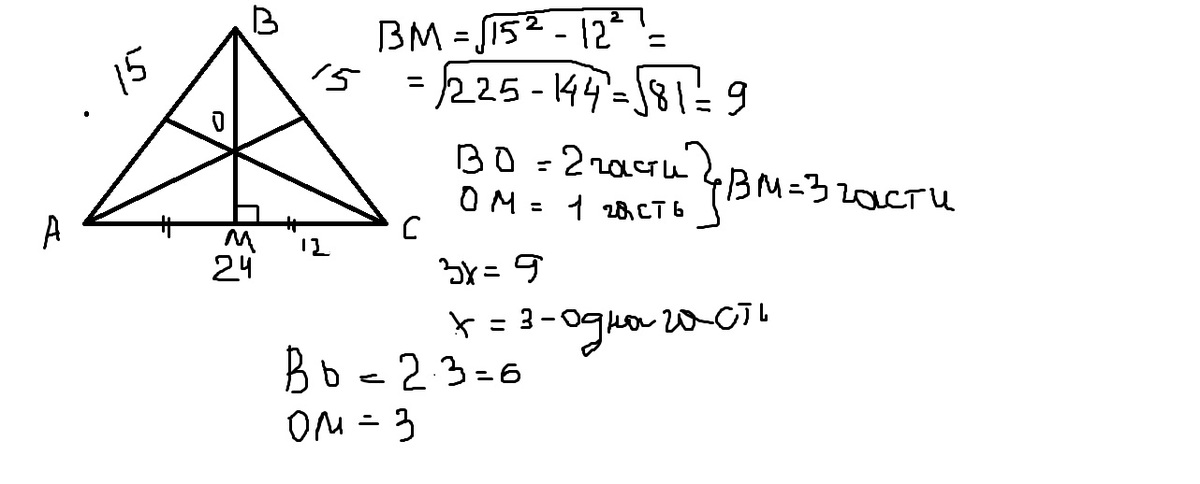 B
15
15
O
A
M
C
12
24
BM = √15² - 12² =
= √225 - 144 = √81 = 9
BO = 2 части
OM = 1 часть
} BM = 3 части
3x = 9
x = 3 - одна часть
Bb = 2 · 3 = 6
OM = 3